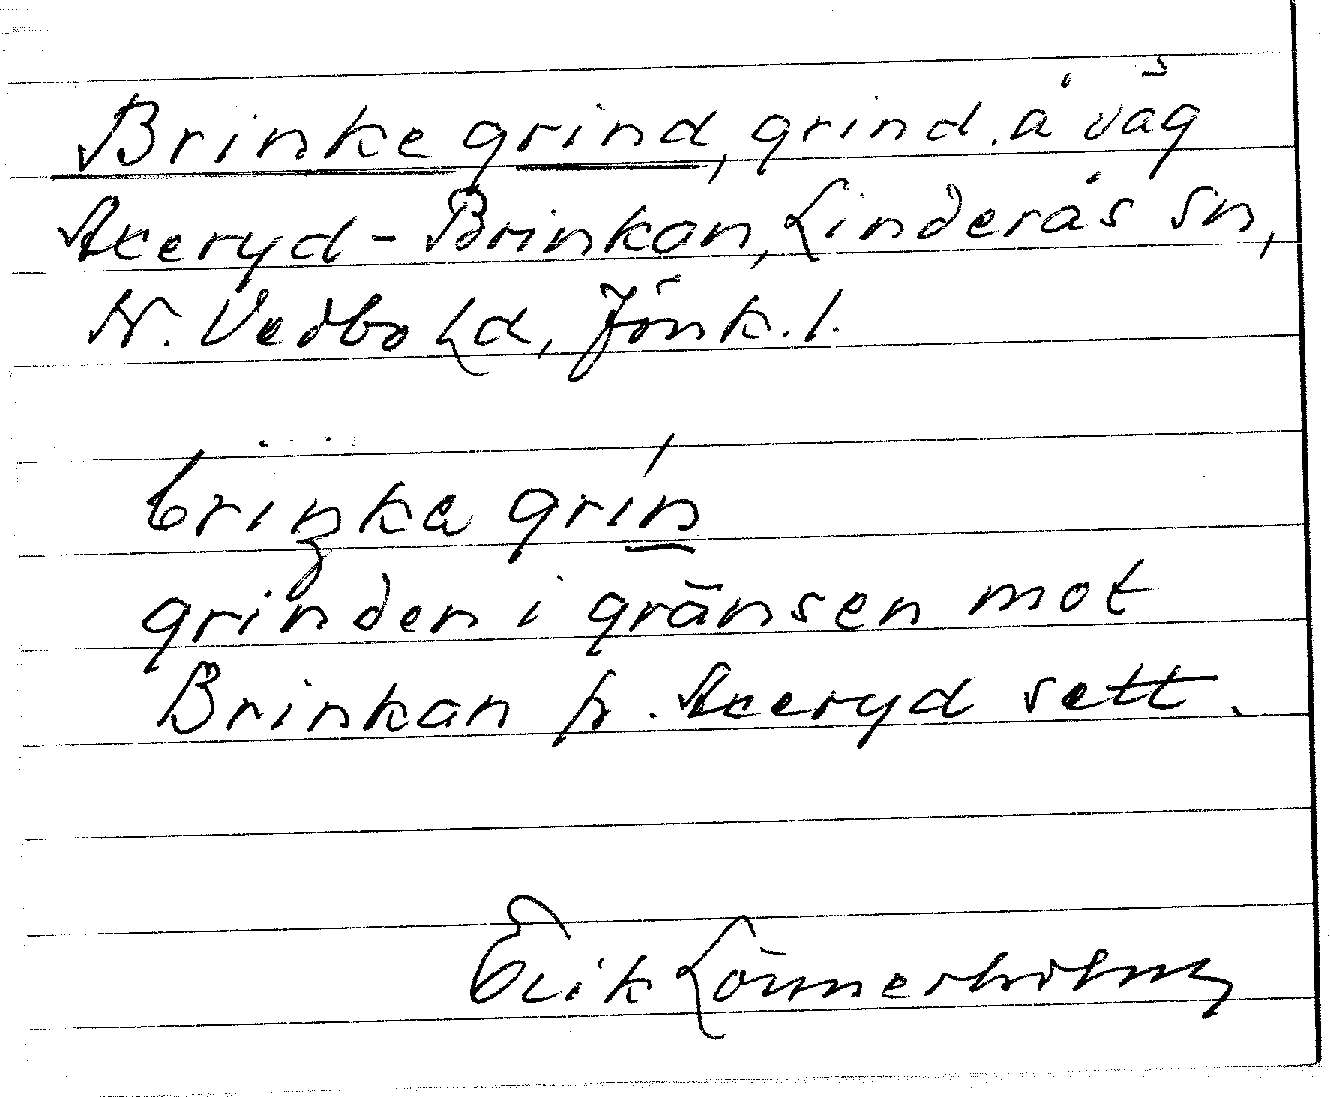 Brinke grind, grind å väg
Axeryd - Brinkan, Linderås sn,
N. Vedbo hd, Jönk. l.
briŋka grín
grinden i gränsen mot
Brinkan fr. Axeryd sett.
Erik Lönnerholm